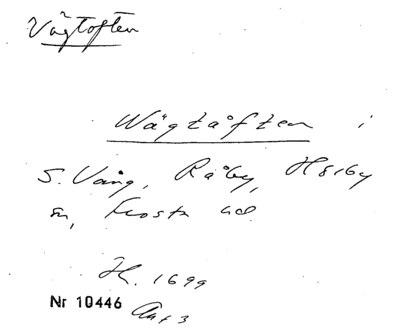 Vägtoften
Wägtåften i
S. Vång, Råby, Hörby
sn, Frosta hd
JH. 1699
Nr 10446